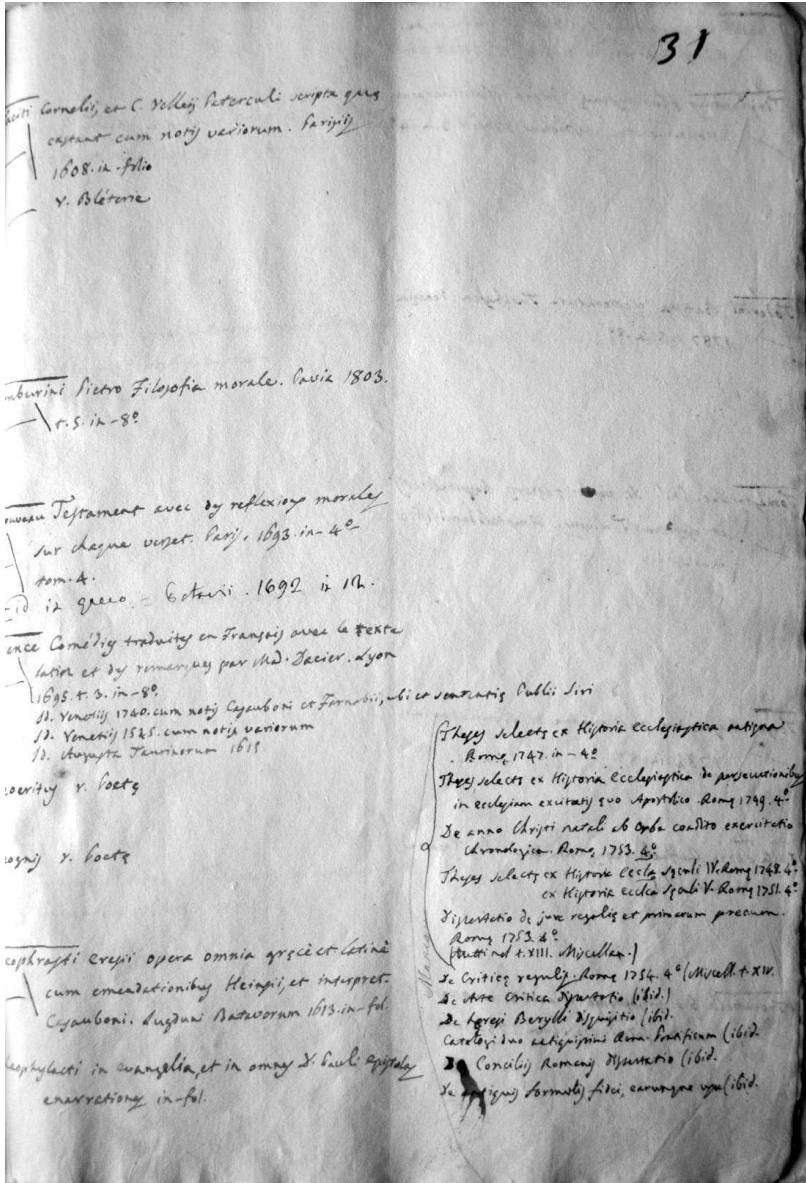 31
Taciti Cornelii, et C. Velleii Paterculi scripta quę
extant cum notis variorum. Parisiis
1608. in-folio
v. Bléterie
mburini Pietro Filosofia morale. Pavia 1803.
t. 5. in-8º
ouveau Testament avec des reflexions morales
sur chaque verset. Paris. 1693. in-4º
tom. 4.
id in greco = 1692 in 12.
ence Comédies traduites en Français avec le texte
latin et des remarques par Mad. Dacier. Lyon
1695. t. 3. in-8º
Id. Venetiis 1740. cum notis Casauboni et Farnabii, ubi et sententię Publii Siri
Id. Venetiis 1545. cum notis variorum
Id. Augustę Taurinorum 1615
eocritus v. Poetę
eognis v. Poetę
eophrasti Eresii opera omnia gręcè et latinè
cum emendationibus Heinsii, et interpret.
Casauboni. Lugduni Batavorum 1613. in-fol.
eophylacti in evangelia, et in omnes D. Pauli epistolas
enarrationes in-fol.
Theses selectę ex Historia ecclesiastica antiqua
Romę 1747. in-4º
Theses selectę ex Historia ecclesiastica de persecutionibus
in ecclesiam excitatis ęvo Apostolico. Romę 1749. 4º
De anno Christi natali ab Orbe condito exercitatio
Chronologica. Romę 1753. 4º
Theses selectę ex Historia eccla sęculi IV. Romę 1748. 4º
ex Historia eccla sęculi V. Romę 1751. 4º
Dissertatio de jure regalię et primarum precum.
Romę 1753. 4º
(tutti nel t. XIII. Miscellan.)
De Criticę regulis. Romę 1754. 4º (Miscell. t. XIV.
De Arte Critica Dissertatio (ibid.)
De hęresi Berylli disquisitio (ibid.
Catalogi duo antiquissimi Rom. Pontificum (ibid.
De Conciliis Romanis dissertatio (ibid.
De antiquis formulis fidei, earumque usu (ibid.